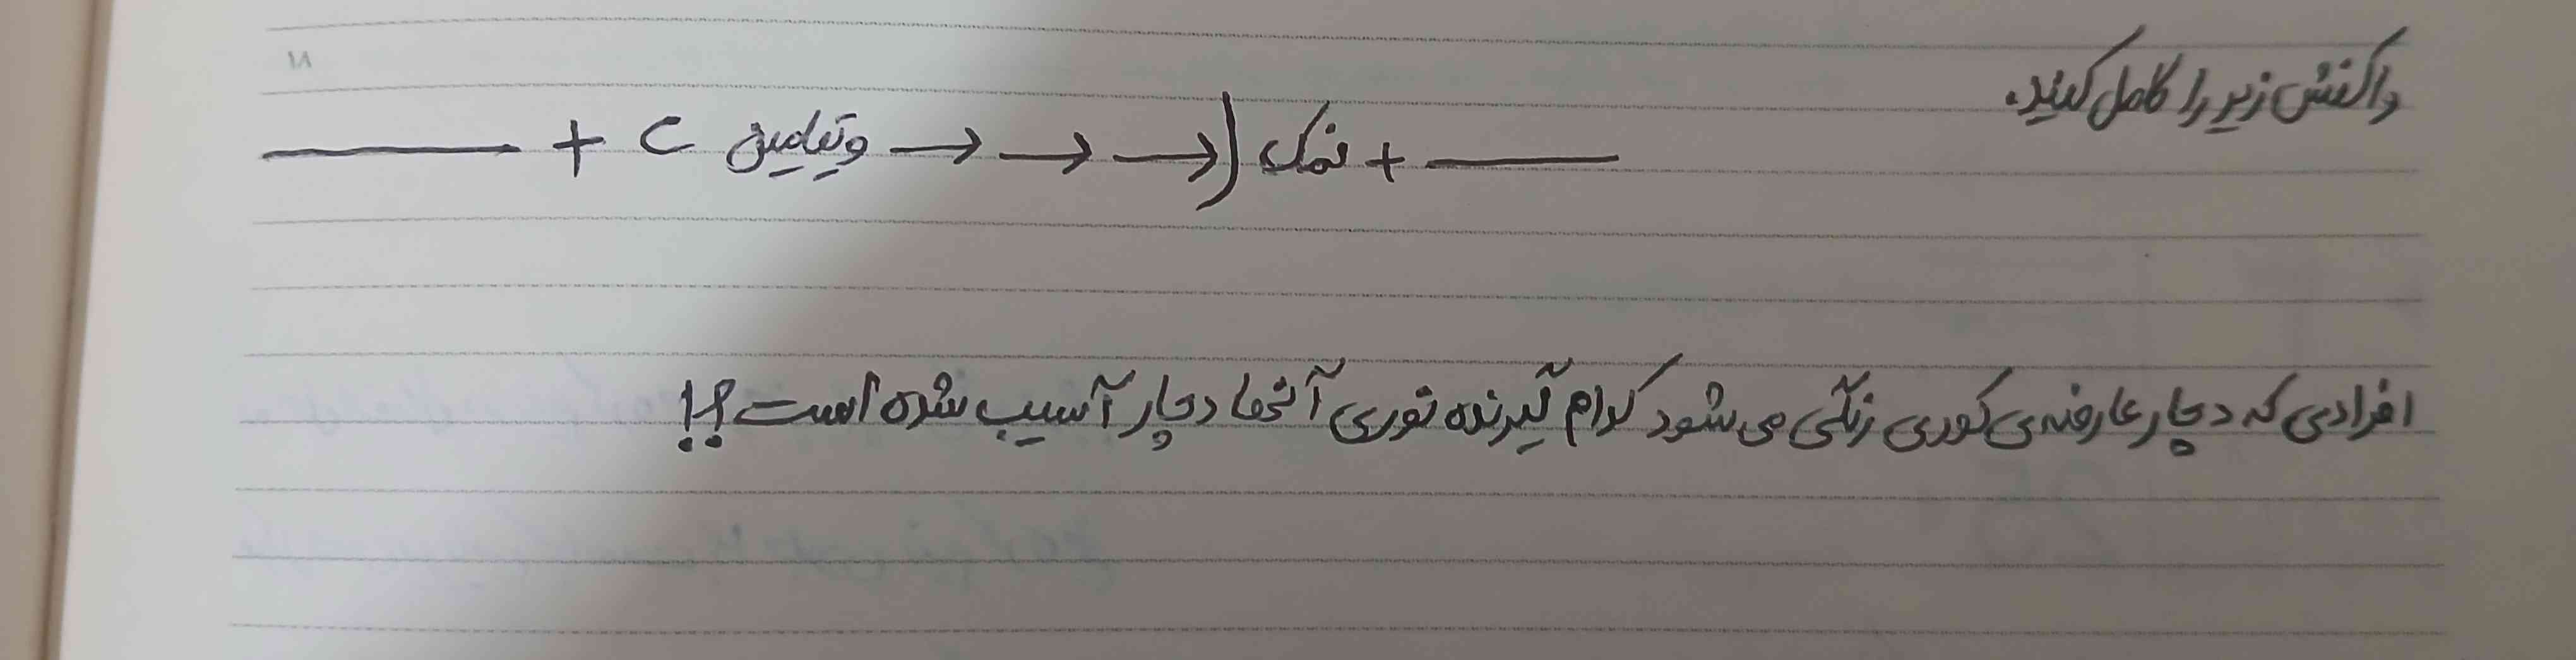 واکنش زیر را کامل کنید.
_____ + ویتامین C → → → نمک + _____
افرادی که دچار عارضه‌ی کوری رنگی می شود کدام گیرنده نوری آنها دچار آسیب شده است؟!